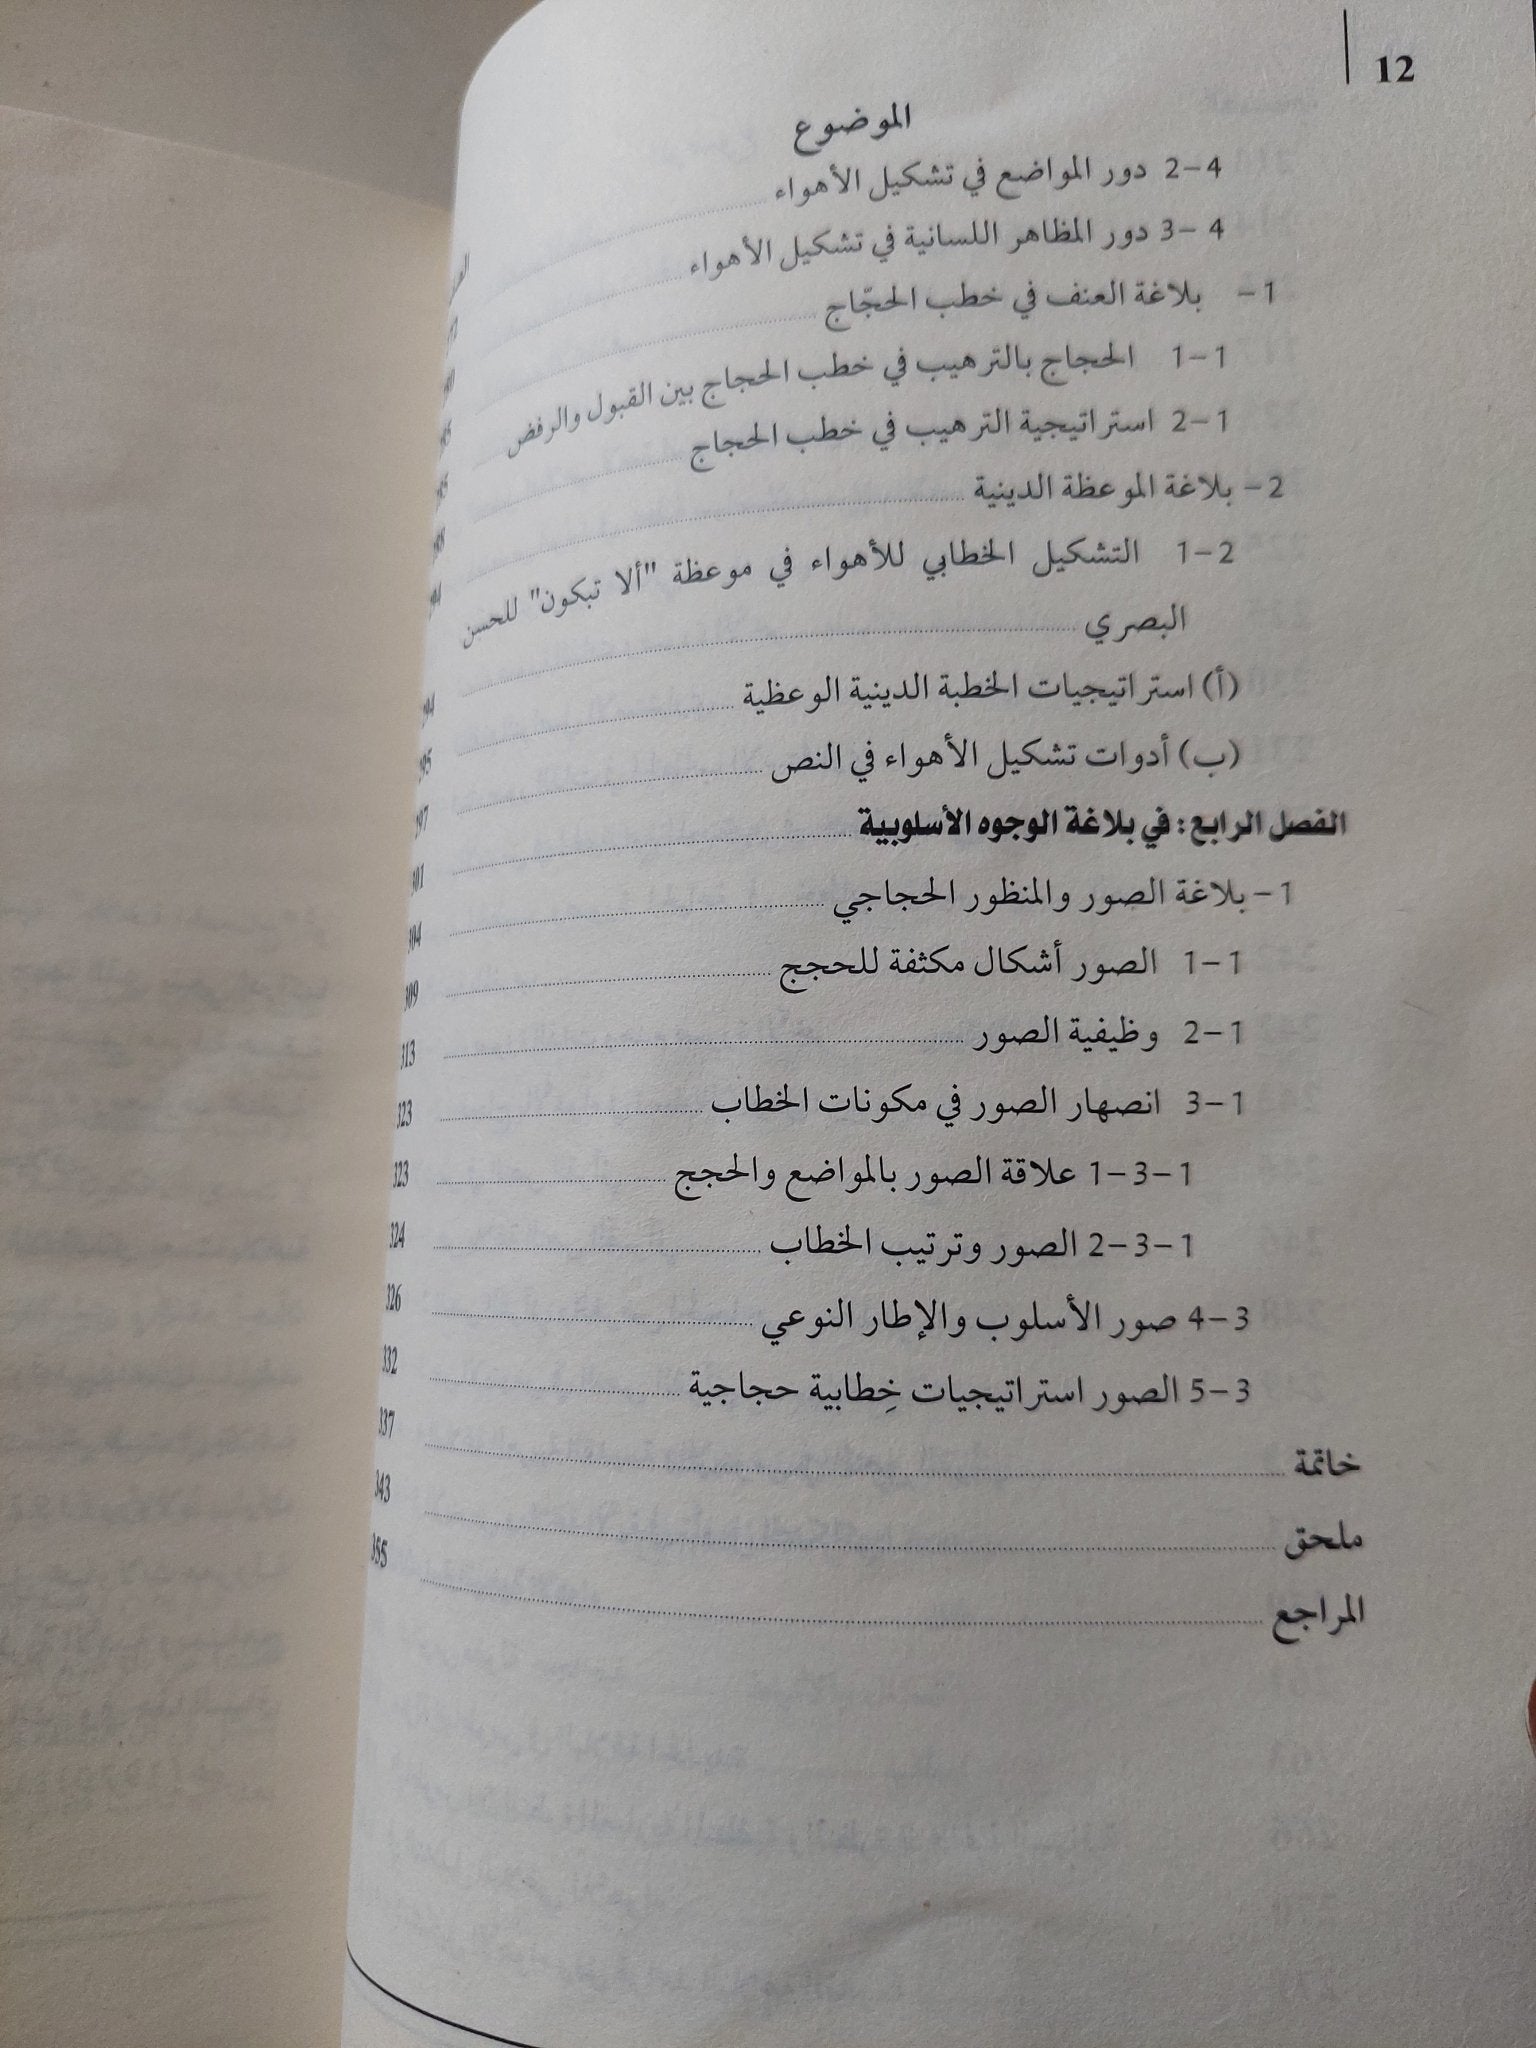 12
الموضوع
4-2 دور المواضع في تشكيل الأهواء
4-3 دور المظاهر اللسانية في تشكيل الأهواء
1- بلاغة العنف في خطب الحجّاج
1-1 الحجاج بالترهيب في خطب الحجاج بين القبول والرفض
1-2 استراتيجية الترهيب في خطب الحجاج
2- بلاغة الموعظة الدينية
2-1 التشكيل الخطابي للأهواء في موعظة "ألا تبكون" للحسن
البصري
(أ) استراتيجيات الخطبة الدينية الوعظية
(ب) أدوات تشكيل الأهواء في النص
الفصل الرابع: في بلاغة الوجوه الأسلوبية
1- بلاغة الصور والمنظور الحجاجي
1-1 الصور أشكال مكثفة للحجج
1-2 وظيفية الصور 313
1-3 انصهار الصور في مكونات الخطاب 323
1-3-1 علاقة الصور بالمواضع والحجج 323
1-3-2 الصور وترتيب الخطاب 324
3-4 صور الأسلوب والإطار النوعي 326
3-5 الصور استراتيجيات خِطابية حجاجية 332
خاتمة 337
ملحق 343
المراجع 355